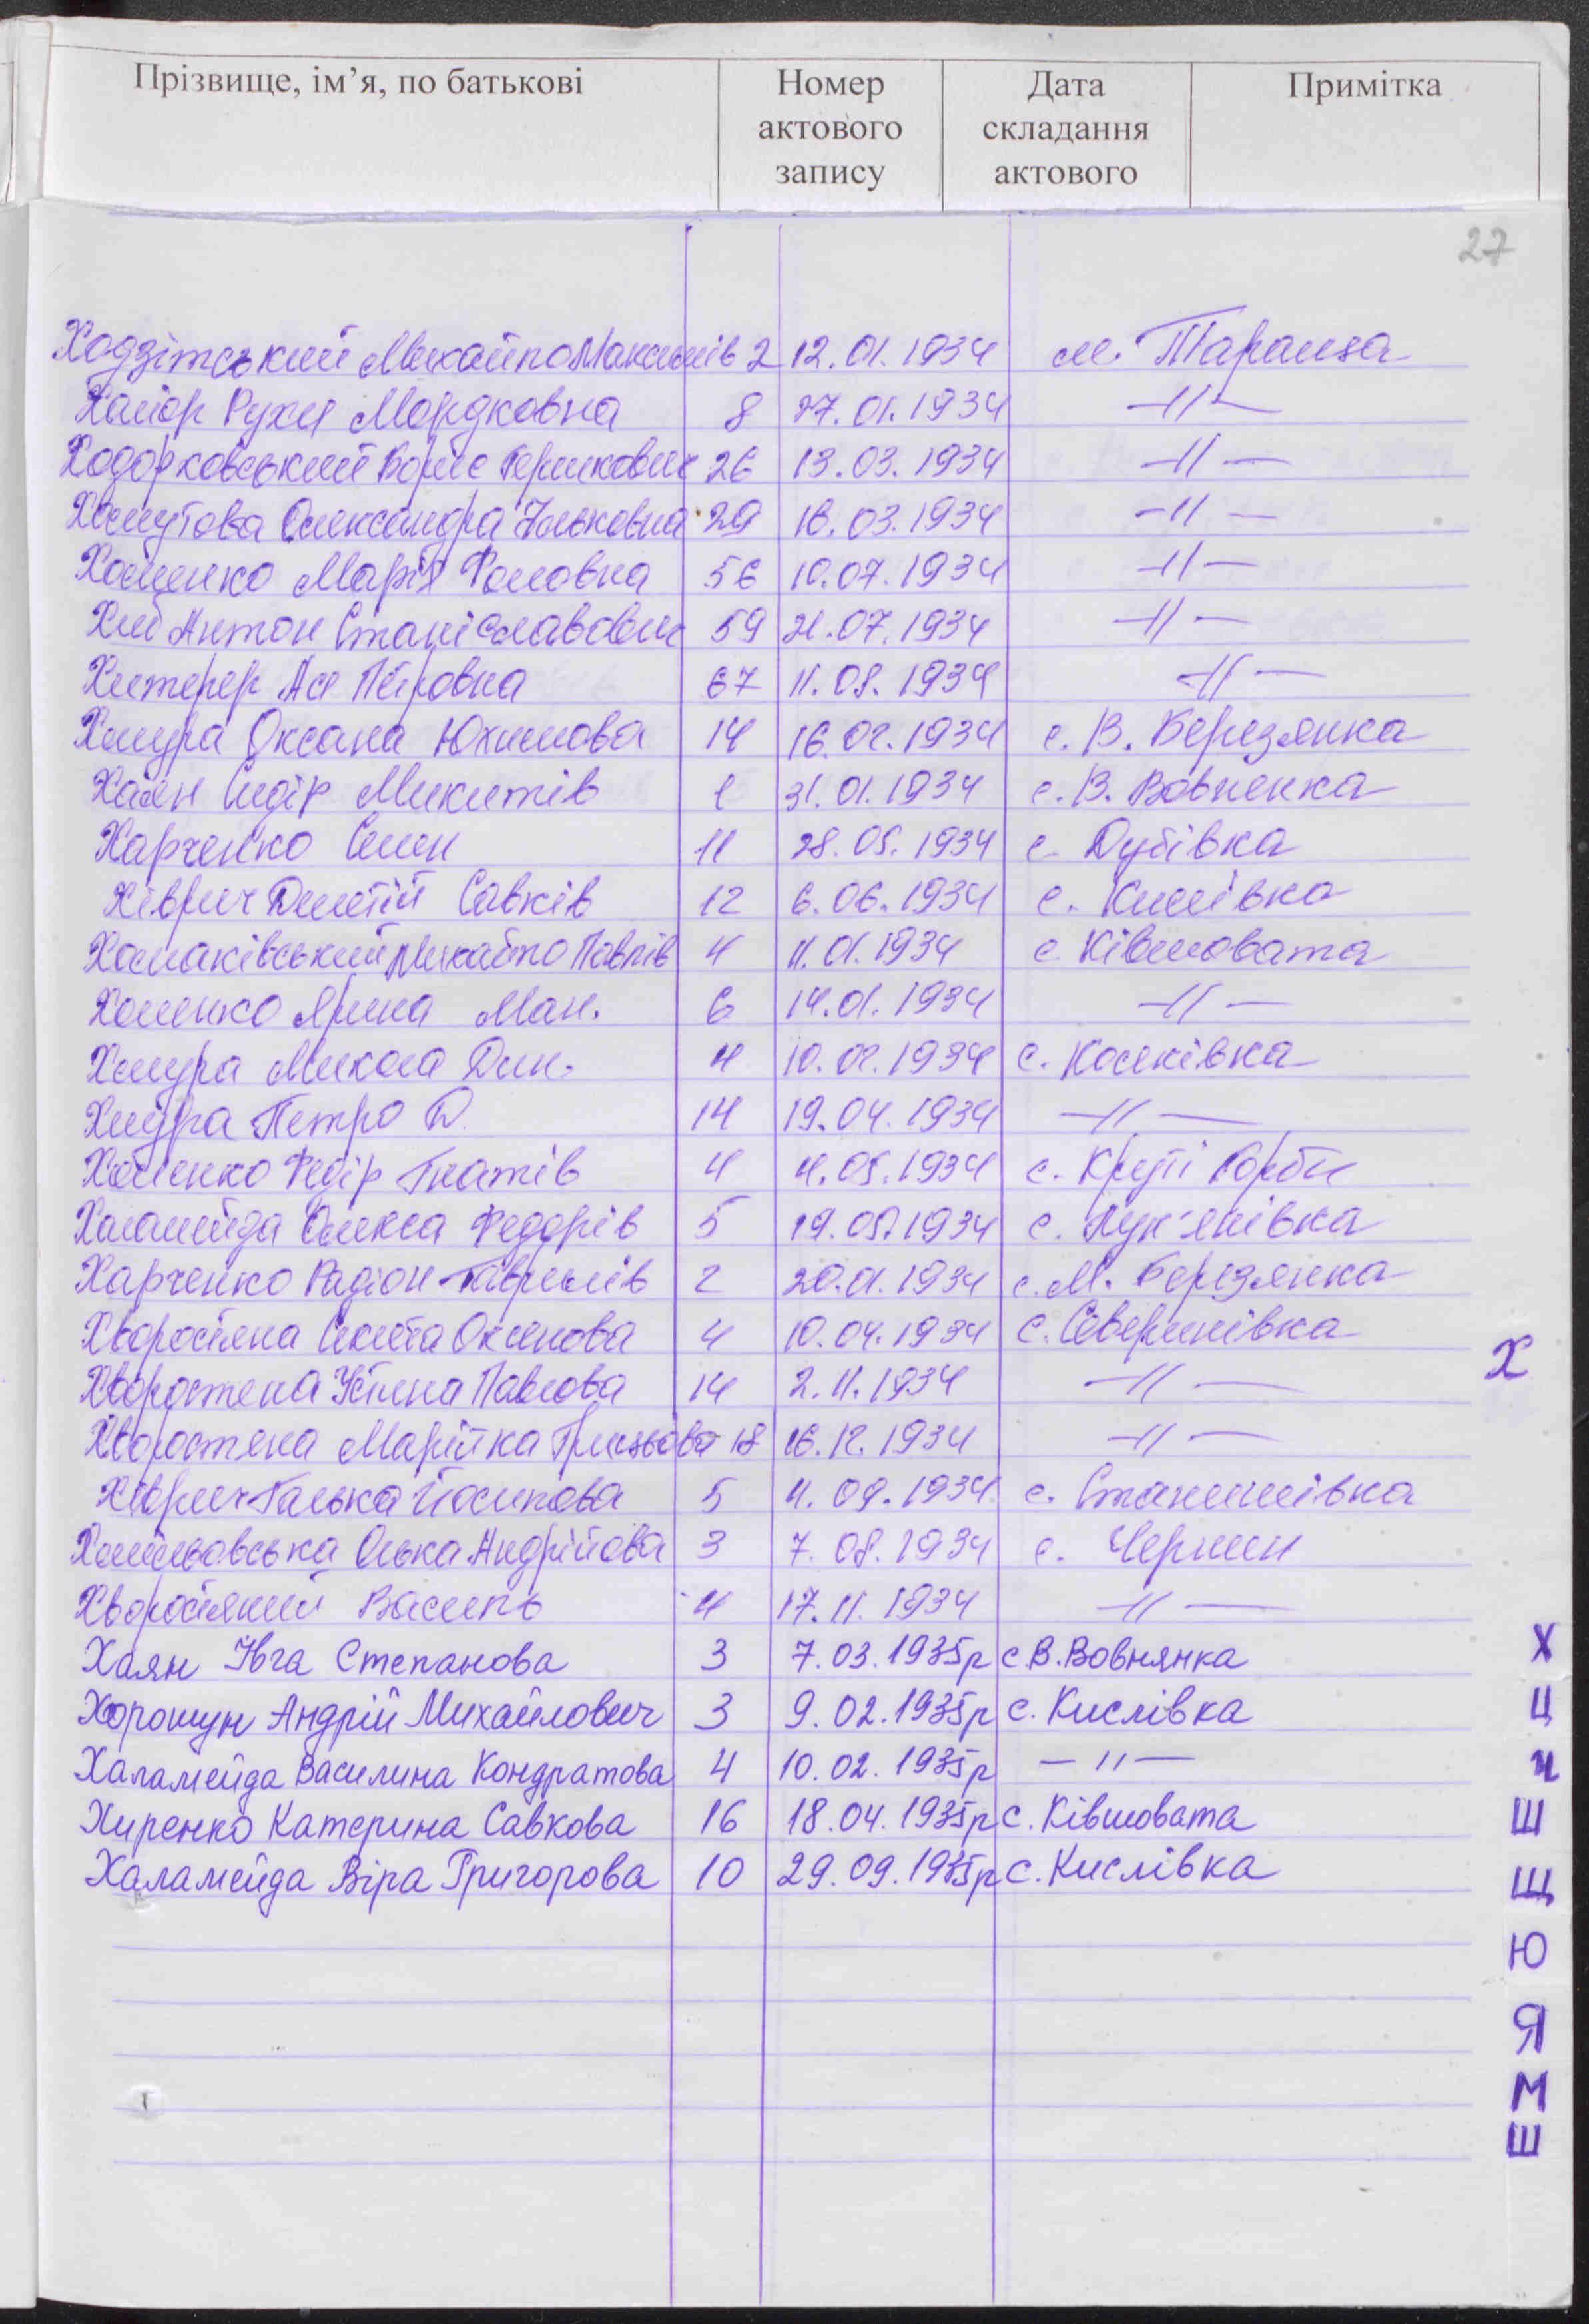 Прізвище, ім’я, по батькові Номер актового запису Дата складання актового Примітка
27
Ходзітський Михайло Максимів 2 12.01.1934 м. Тараща
Рухя Мордковна 8 27.01.1934 -//-
Ходорковський Борис Гершкович 26 13.03.1934 -//-
Хомутова Олександра 29 16.03.1934 -//-
Хоменко Марія Фомовна 56 10.07.1934 -//-
Антон Станіславович 59 21.07.1934 -//-
Хитерер Ася Петровна 67 11.08.1934 -//-
Хмура Оксана Юхимова 14 16.02.1934 с. В. Березянка
Хаян Сидір Микитів 1 31.01.1934 с. В. Вовненка
Харченко Семен 11 28.05.1934 с. Дубівка
Хіврич Савків 12 6.06.1934 с.
Хомаківський Михайло Павлів 4 11.01.1934 с. Ківшовата
Хоменко Ярина Ман. 6 14.01.1934 -//-
Хмура Микола Дин. 4 10.02.1934 с. Косяківка
Хмура Петро Д. 14 19.04.1934 -//-
Хоменко Федір Гнатів 4 4.05.1934 с. Круті Горби
Халамейда Олекса Федорів 5 19.05.1934 с. Лук'янівка
Харченко Радіон Гаврилів 2 20.01.1934 с. М. Березянка
Хворостяна Оксенова 4 10.04.1934 с. Северинівка
Хворостена Устина Павлова 14 2.11.1934 -//-
Х
Хворостяна Марійка Грицькова 18 16.12.1934 -//-
Хіврич Галька Йосипова 5 4.09.1934 с. Станишівка
Олька Андрійова 3 7.08.1934 с. Чернин
Хворостяний Василь 4 17.11.1934 -//-
Хаян Ївга Степанова 3 7.03.1935р с В. Вовнянка
Х
Хорошун Андрій Михайлович 3 9.02.1935р с. Кислівка
Ц
Халамейда Василина Кондратова 4 10.02.1935р -"-
Ч
Хиренко Катерина Савкова 16 18.04.1935р с. Ківшовата
Ш
Халамейда Віра Григорова 10 29.09.1935р с. Кислівка
Щ
Ю
Я
М
Ш